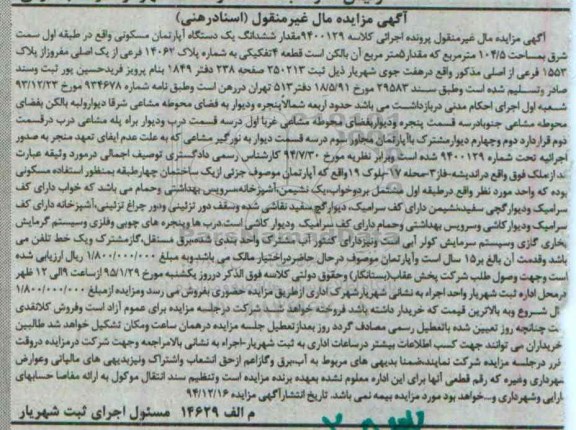 آگهی مزایده مال غیرمنقول (اسنادرهنی)
آگهی مزایده مال غیرمنقول پرونده اجرائی کلاسه ۹۴۰۰۱۲۹مقدار ششدانگ یک دستگاه آپارتمان مسکونی واقع در طبقه اول سمت
شرق بمساحت ۱۰۴/۵ مترمربع که مقدار۵متر مربع آن بالکن است قطعه ۴تفکیکی به شماره پلاک ۱۴۰۶۲ فرعی از یک اصلی مفروزاز پلاک
۱۵۵۳ فرعی از اصلی مذکور واقع درهفت جوی شهریار ذیل ثبت ۲۵۰۲۱۳ صفحه ۲۳۸ دفتر ۱۸۴۹ بنام پرویز فریدحسین پور ثبت وسند
صادر وتسلیم شده است وطبق سند ۲۹۵۸۳ مورخ ۱۸/۵/۹۱ دفتر۵۱۳ تهران دررهن است وطبق نامه شماره ۹۳۴۶۷۸ مورخ ۹۳/۱۲/۲۳
شعبه اول اجرای احکام مدنی دربازداشت می باشد حدود اربعه شمالاًپنجره ودیوار به فضای محوطه مشاعی شرقا دیوارولبه بالکن بفضای
محوطه مشاعی جنوبادرسه قسمت پنجره ودیواربفضای محوطه مشاعی غربا اول درسه قسمت درب ودیوار براه پله مشاعی درب درقسمت
دوم قراردارد دوم وچهارم دیوارمشترک باآپارتمان مجاور سوم درسه قسمت دیوار به نورگیر مشاعی که به علت عدم ایفای تعهد منجر به صدور
اجرائیه تحت شماره ۹۴۰۰۱۲۹ شده است وبرابر نظریه مورخ ۹۴/۷/۳۰ کارشناس رسمی دادگستری توصیف اجمالی درمورد وثیقه عبارت
کد:املک فوق واقع دراندیشه-فاز۳-محله ۱۷-بلوک ۱۹واقع که آپارتمان موصوف جزئی ازیک ساختمان چهارطبقه بمنظور استفاده مسکونی
بوده که واحد مورد نظر واقع درطبقه اول مشتمل بردوخواب،یک نشیمن،آشپزخانه،سرویس بهداشتی وحمام می باشد که خواب دارای کف
سرامیک ودیوارگچی سفیدنشیمن دارای کف سرامیک، دیوارگچ سفید نقاشی شده وسقف دور تزئینی ودور چراغ تزئینی،آشپزخانه دارای کف
سرامیک ودیوارکاشی وسرویس بهداشتی وحمام دارای کف سرامیک ودیوار کاشی است.درب ها وپنجره های چوبی وفلزی وسیستم گرمایش
بخاری گازی وسیستم سرمایش کولر آبی است ونیزدارای کنتور آب مشترک واحد بندی شده،برق مستقل،گازمشترک ویک خط تلفن می
باشد وقدمت آن بالغ بر۱۵ سال است وآپارتمان موصوف درحال حاضردراختیار مالک می باشدوبه مبلغ ۱/۸۰۰/۰۰۰/۰۰۰ ریال ارزیابی شده
است وجهت وصول طلب شرکت پخش عقاب(بستانکار) وحقوق دولتی کلاسه فوق الذکر درروز یکشنبه مورخ ۹۵/۱/۲۹ ازساعت ۹الی ۱۲ ظهر
درمحل اداره ثبت شهریار واحد اجراء به نشانی شهریارشهرک اداری ازطریق مزایده حضوری بفروش می رسد ومزایده ازمبلغ ۱/۸۰۰/۰۰۰/۰۰۰
ال شروع وبه بالاترین قیمت که خریدار داشته باشد فروخته خواهد شد.شرکت درجلسه مزایده برای عموم آزاد است وفروش کلانقدی
ت چنانچه روز تعیین شده باتعطیل رسمی مصادف گردد روز بعدازتعطیل جلسه مزایده درهمان ساعت ومکان تشکیل خواهد شد طالبین
خریداران می توانند جهت کسب اطلاعات بیشتر درساعات اداری به ثبت شهریار-اجراء به نشانی بالامراجعه وجهت شرکت درمزایده دروقت
نرر درجلسه مزایده شرکت نمایند،ضمنا بدیهی های مربوط به آب،برق وگازاعم ازحق انشعاب واشتراک ونیزبدیهی های مالیاتی وعوارض
شهرداری وغیره که رقم قطعی آنها برای این اداره معلوم نشده بعهده برنده مزایده است وتنظیم سند انتقال موکول به ارائه مفاصا حسابهای
ارایی وشهرداری و...خواهد بود مورد مزایده بیمه نمی باشد. تاریخ انتشارآگهی مزایده ۹۴/۱۲/۱۶
م الف ۱۴۶۲۹ مسئول اجرای ثبت شهریار